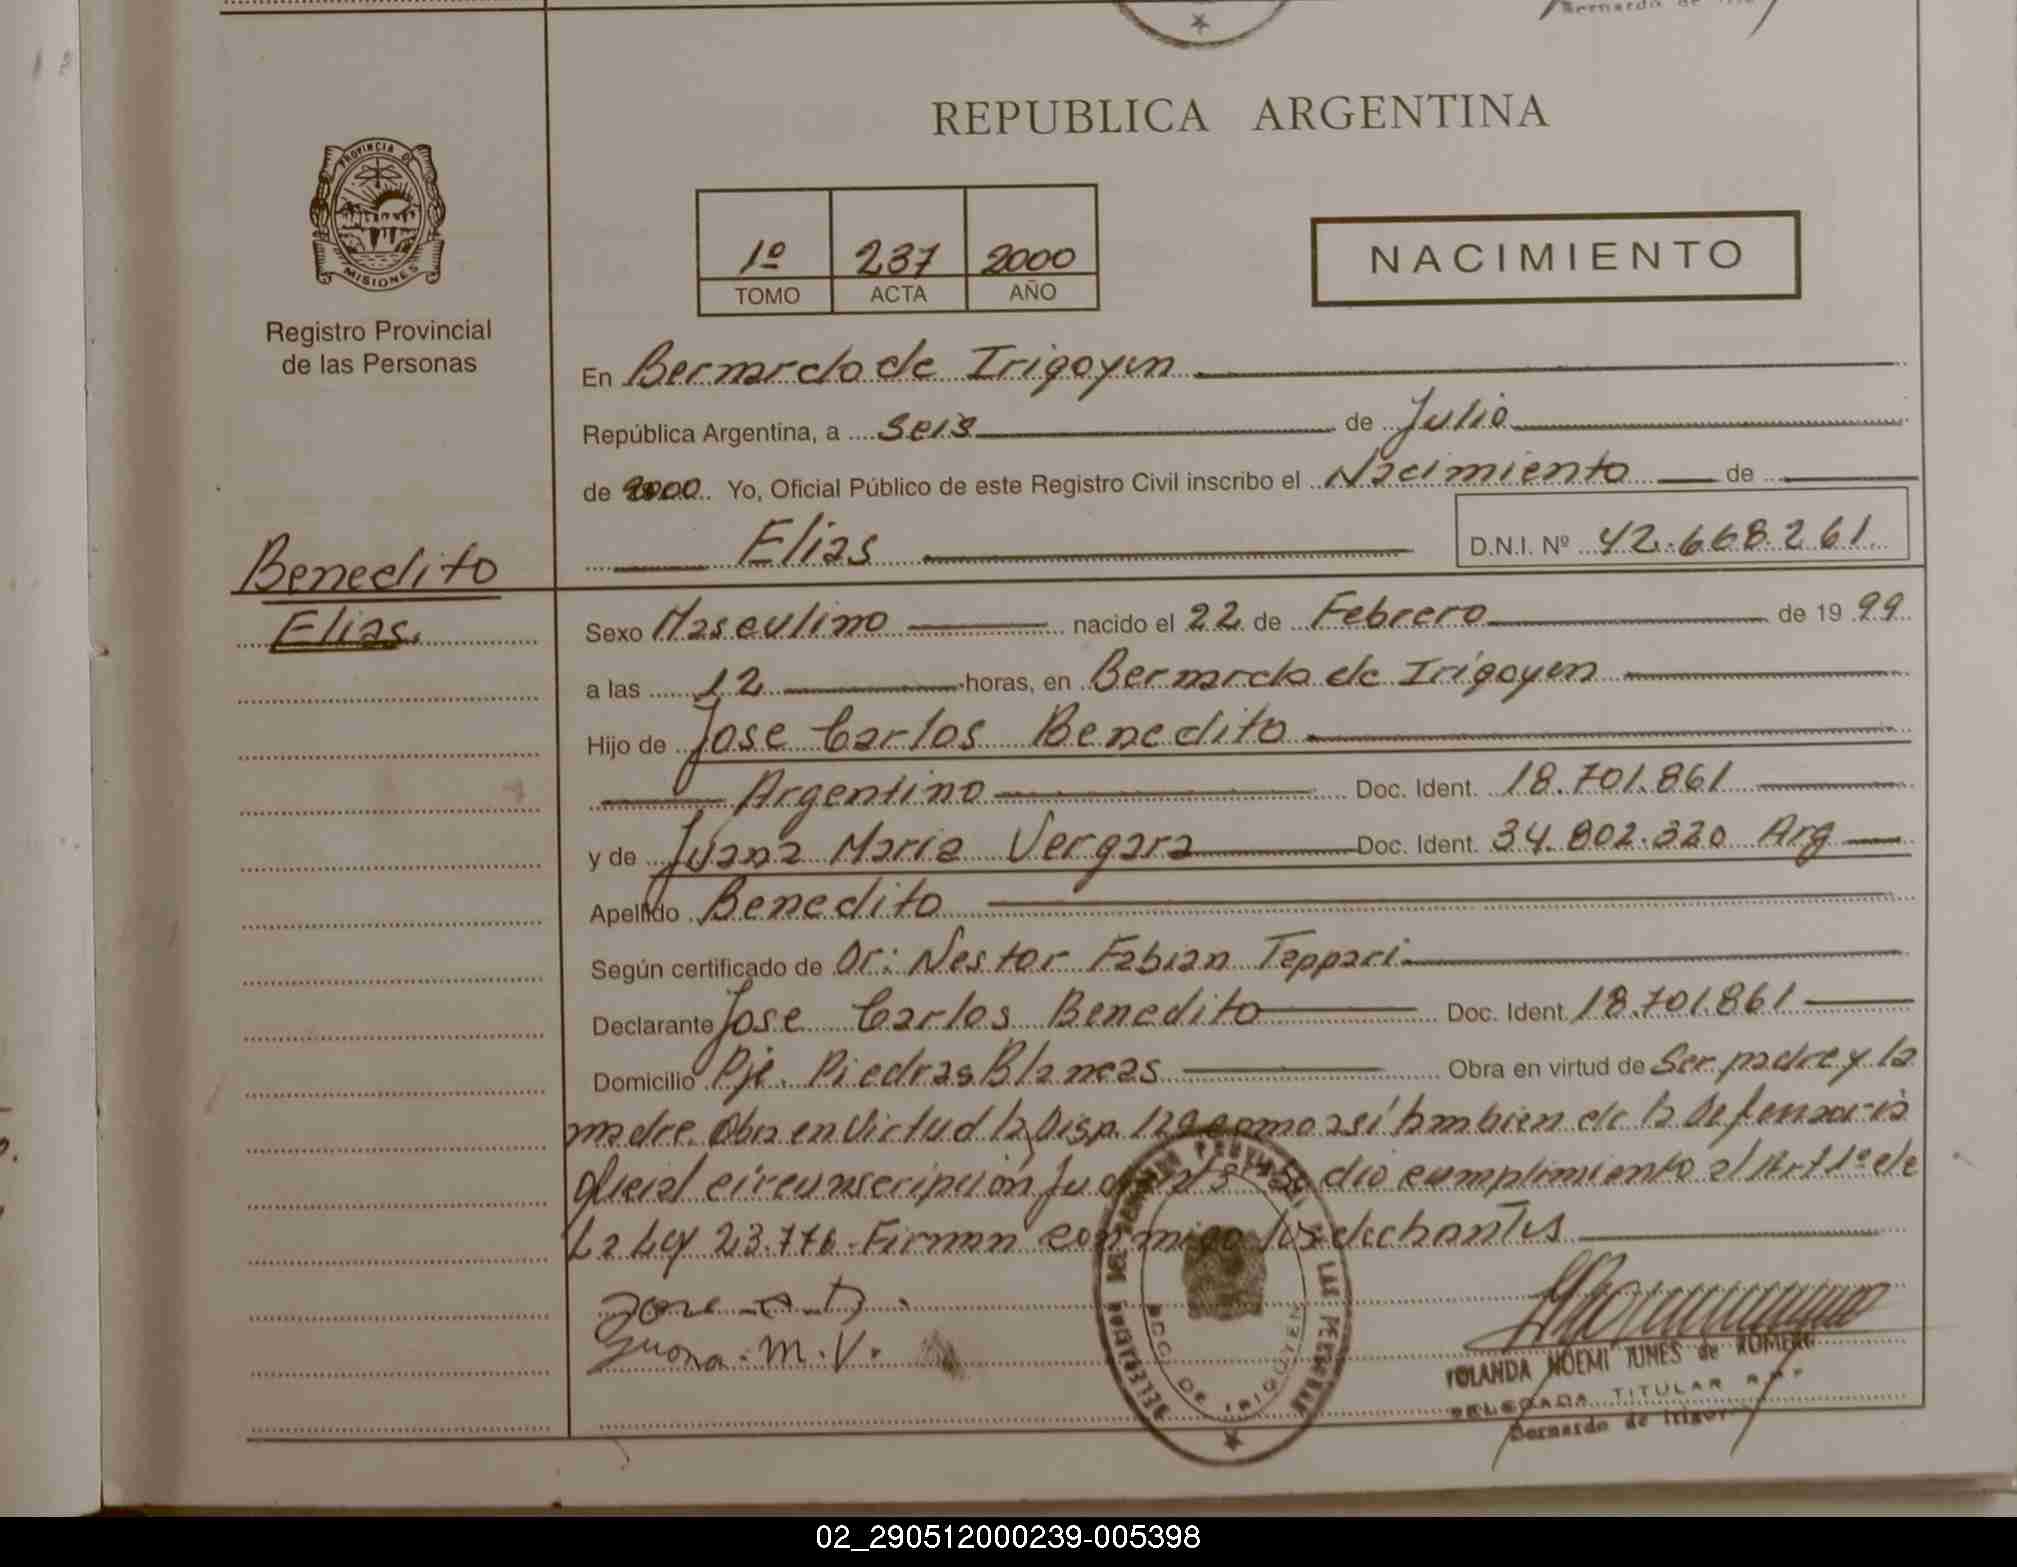 REPUBLICA ARGENTINA
PROVINCIA DE
MISIONES
Registro Provincial
de las Personas
1º 237 2000
TOMO ACTA AÑO
NACIMIENTO
En Bernardo de Irigoyen
República Argentina, a seis de Julio
de 2000 Yo, Oficial Público de este Registro Civil inscribo el Nacimiento de
Elias D.N.I. Nº 42.668.261
Benedito
Elias.
Sexo Masculino nacido el 22 de Febrero de 1999
a las 12 horas, en Bernardo de Irigoyen
Hijo de Jose Carlos Benedito
Argentino Doc. Ident. 18.701.861
y de Juana Maria Vergara Doc. Ident. 34.802.320 Arg
Apellido Benedito
Según certificado de Dr: Nestor Fabian Tappari
Declarante Jose Carlos Benedito Doc. Ident. 18.701.861
Domicilio Pje. Piedras Blancas Obra en virtud de Ser padre y la
madre. Obra en virtud la Disp. como así tambien de la Defensoria
oficial circunscripción dio cumplimiento al Art 1º de
La Ley 23.776. Firman conmigo los
Jose
Juana. M. V.
REGISTRO PROVINCIAL DE LAS PERSONAS
BDO. DE IRIGOYEN
YOLANDA NOEMI TUNES de ROMERO
DELEGADA TITULAR
Bernardo de Irigoyen
02_290512000239-005398